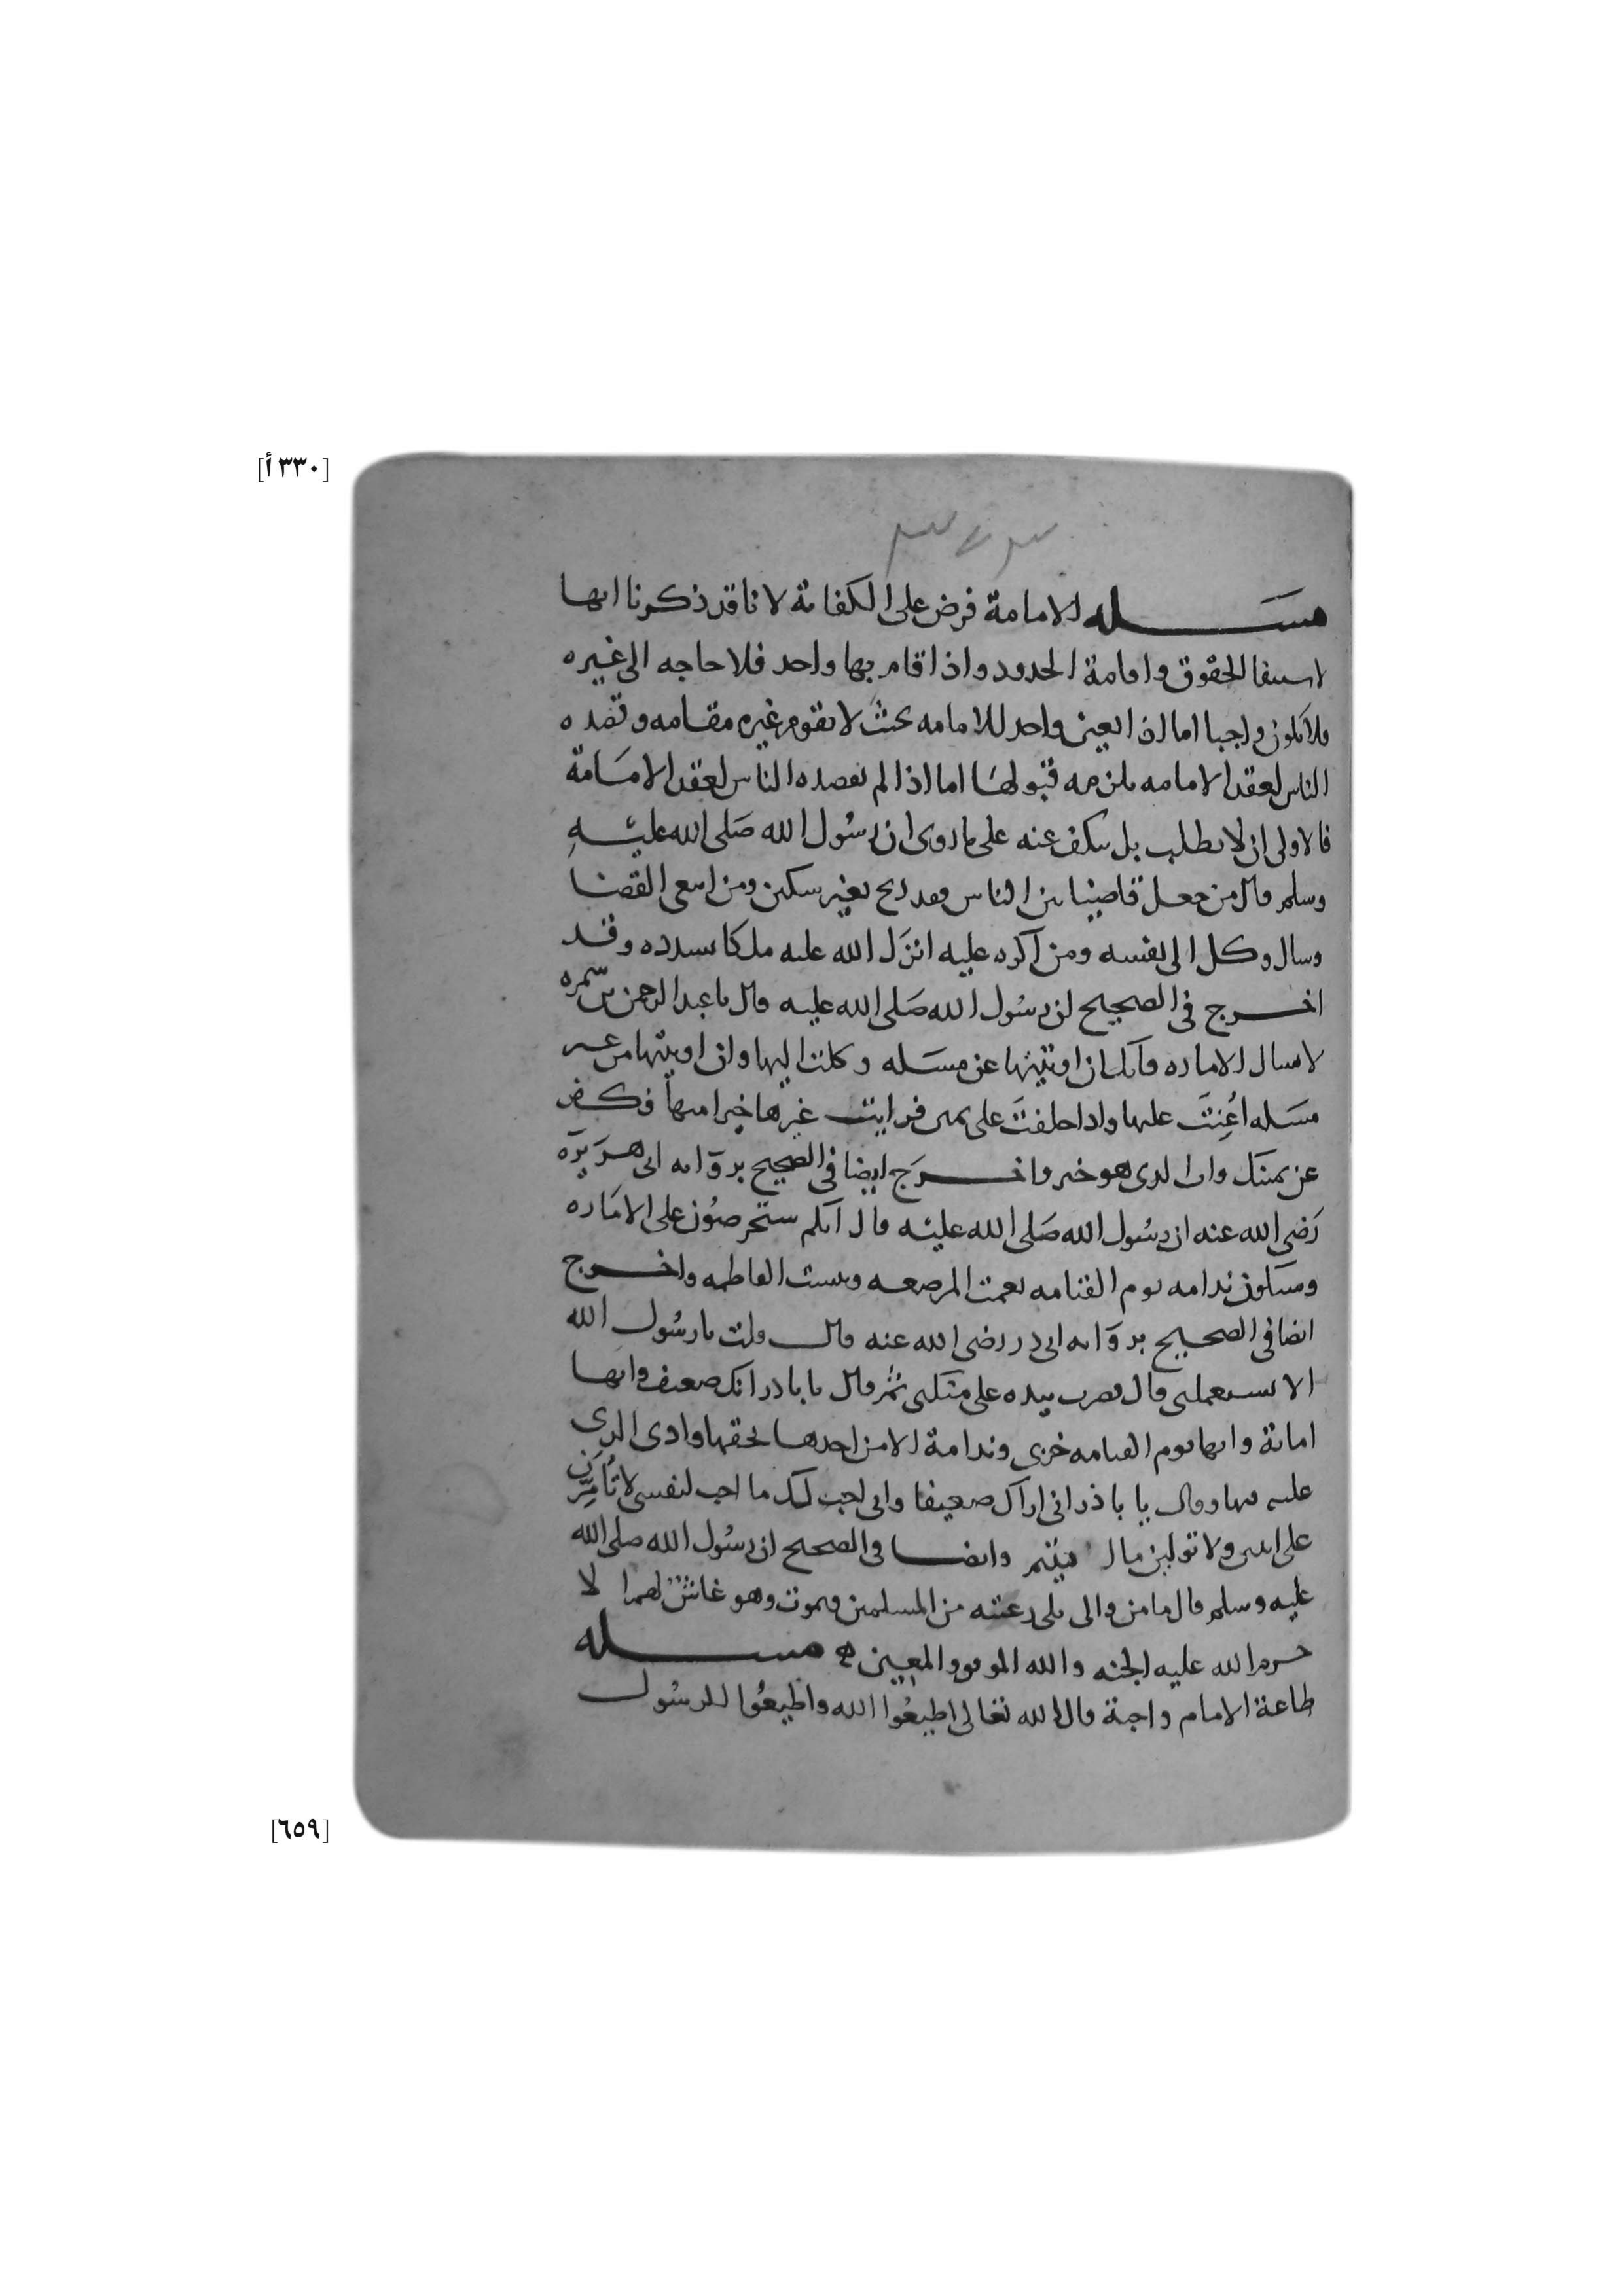 [٣٣٠أ]
مسله الامامة فرض على الكفاية لانا قد ذكرنا انها
لاستيفا الحقوق واقامة الحدود واذا قام بها واحد فلا حاجه الى غيره
فلا يكون واجبا اما ان تعين واحد للامامه بحيث لا يقوم غيره مقامه وقصده
الناس لعقد الامامه يلزمه قبولها اما اذا لم يقصده الناس لعقد الامامة
فالاولى ان لا يطلب بل يكف عنه على ما روى ان رسول الله صلى الله عليه
وسلم قال من جعل قاضيا بين الناس فقد ذبح بغير سكين ومن ابتغى القضا
وسال وكل الى نفسه ومن اكره عليه انزل الله عليه ملكا يسدده وقد
اخرج فى الصحيح ان رسول الله صلى الله عليه قال يا عبد الرحمن بن سمره
لا تسال الاماره فانك ان اوتيتها عن مسله وكلت اليها وان اوتيتها من غير
مسله اعنت عليها واذا حلفت على يمين فرايت غيرها خيرا منها فكفر
عن يمينك وات الذى هو خير واخرج ايضا فى الصحيح بروايه ابى هريرة
رضى الله عنه ان رسول الله صلى الله عليه قال انكم ستحرصون على الاماره
وستكون ندامه يوم القيامه نعمت المرضعه وبيست الفاطمه واخرج
ايضا فى الصحيح بروايه ابى ذر رضى الله عنه قال قلت يا رسول الله
الا تستعملنى قال فضرب بيده على منكبى ثم قال يا با ذر انك ضعيف وانها
امانة وانها يوم القيامه خزى وندامة الا من اخذها بحقها وادى الذى
عليه فيها وقال يا با ذر انى اراك ضعيفا وانى احب لك ما احب لنفسى لا تأمرن
على اثنين ولا تولين مال يتيم وايضا فى الصحيح ان رسول الله صلى الله
عليه وسلم قال ما من والى يلى رعية من المسلمين فيموت وهو غاش لهم الا
حرم الله عليه الجنه والله الموفق والمعين مسله
طاعة الامام واجبة قال الله تعالى اطيعوا الله واطيعوا الرسول
[٦٥٩]